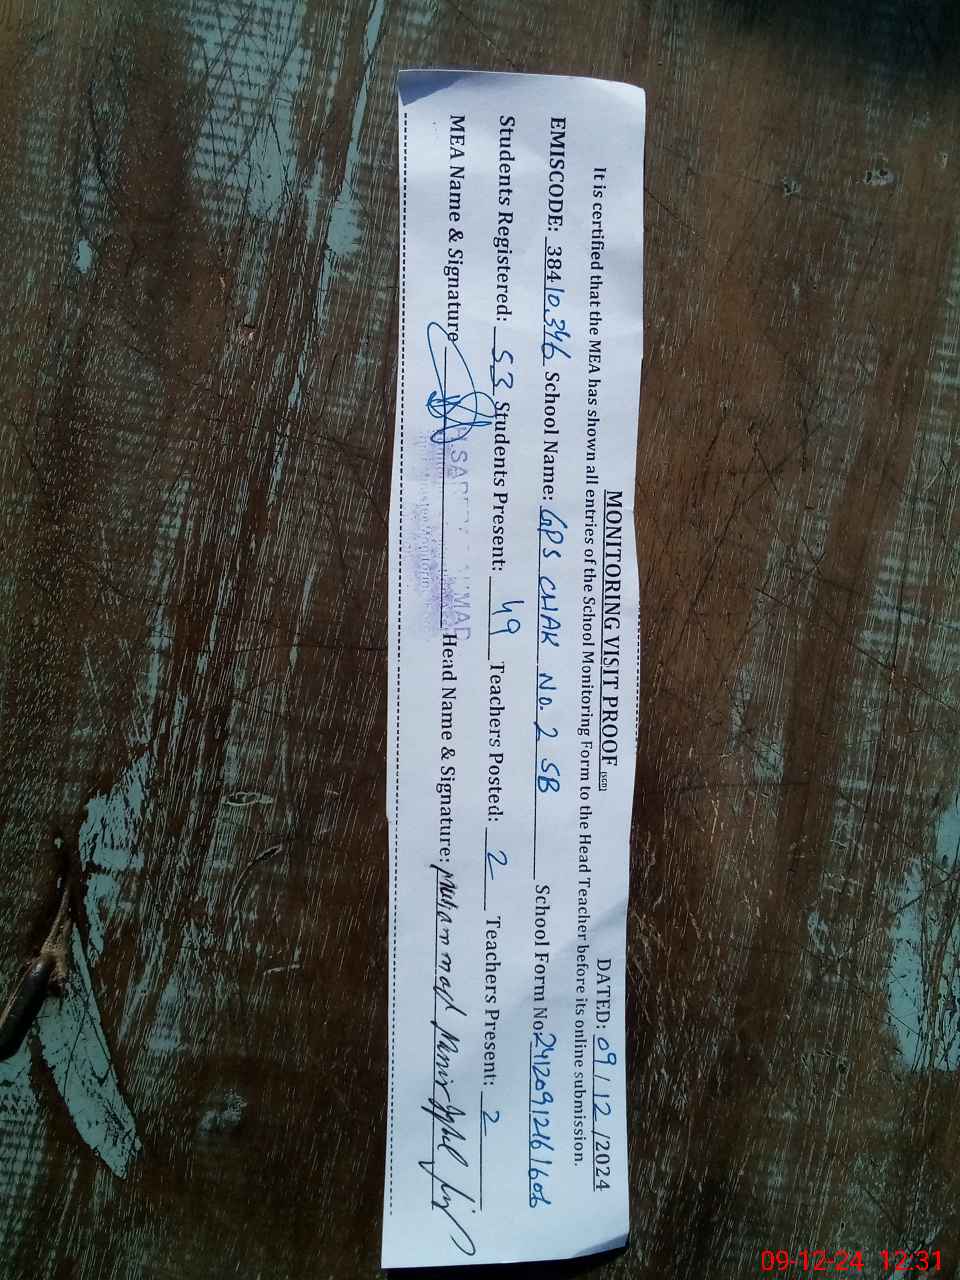 MONITORING VISIT PROOF (SGD) DATED: 09/12/2024
It is certified that the MEA has shown all entries of the School Monitoring Form to the Head Teacher before its online submission.
EMISCODE: 38410346 School Name: GPS CHAK NO. 2 SB School Form No. 24120912161606
Students Registered: 53 Students Present: 49 Teachers Posted: 2 Teachers Present: 2
MEA Name & Signature Head Name & Signature: Muhammad
09-12-24 12:31